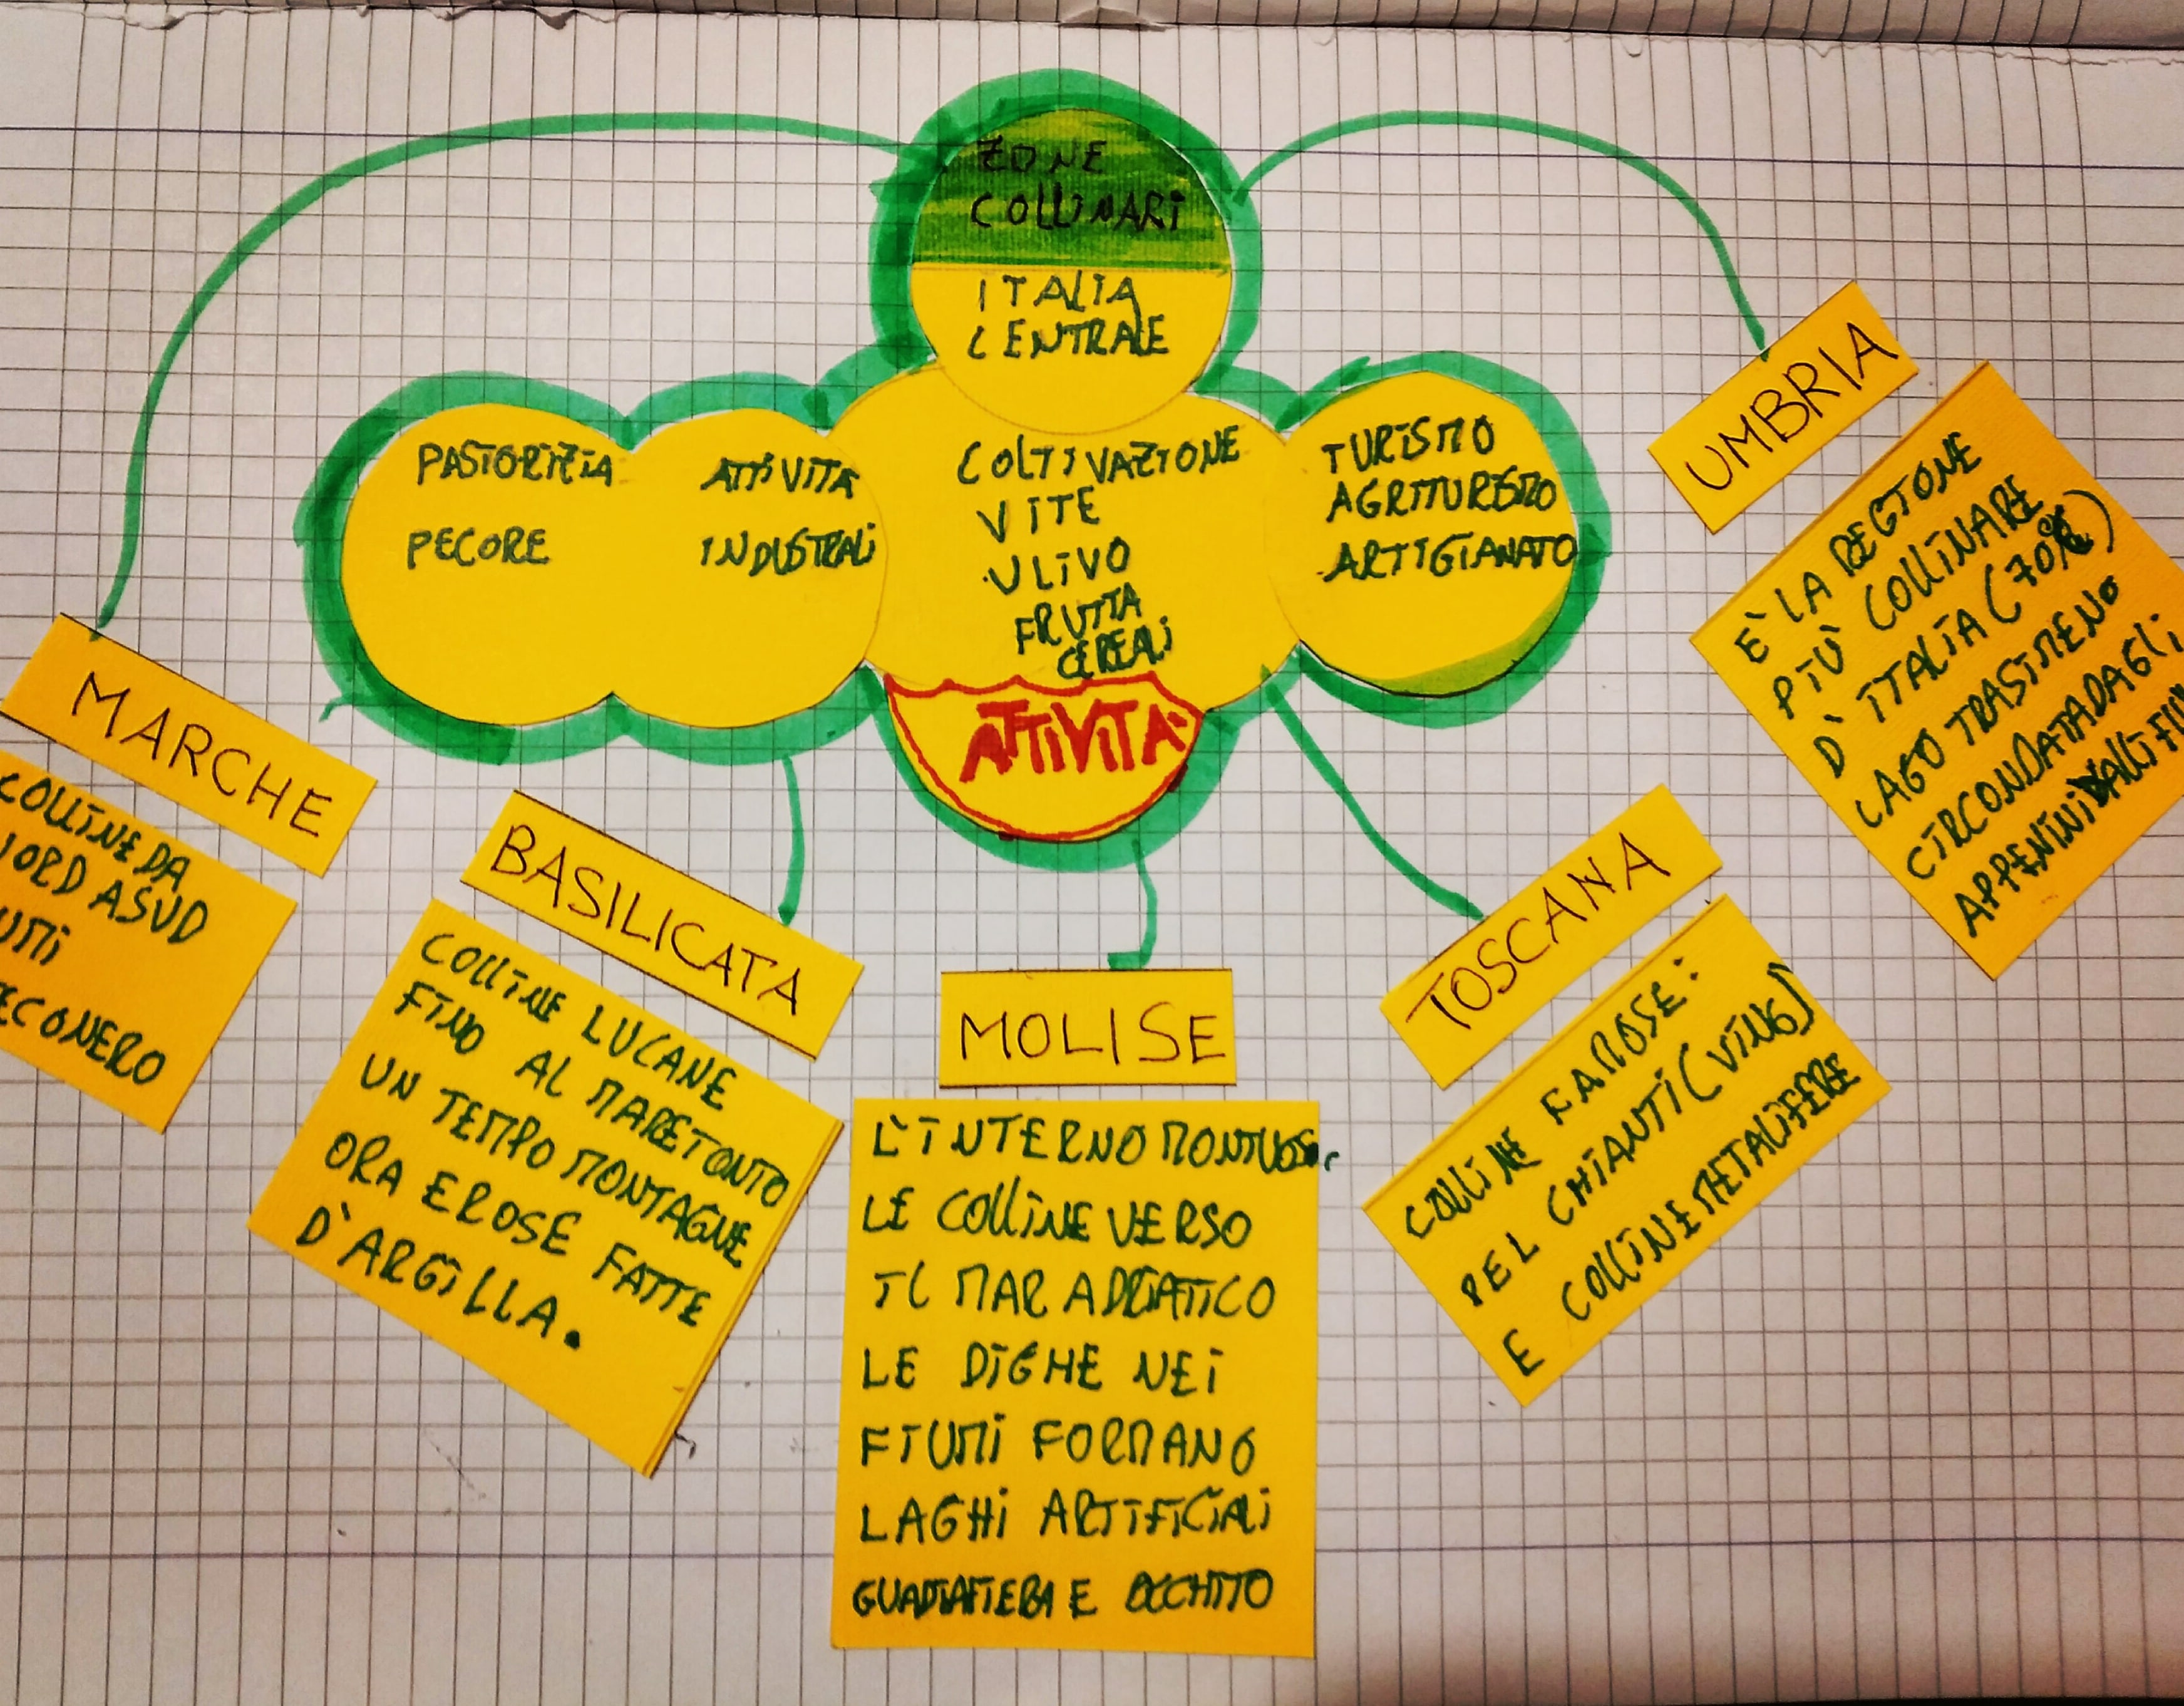 ZONE
COLLINARI
ITALIA
CENTRALE
PASTORIZIA
PECORE
ATTIVITÀ
INDUSTRALI
COLTIVAZIONE
VITE
ULIVO
FRUTTA
CEREALI
TURISMO
AGRITURISMO
ARTIGIANATO
ATTIVITÀ
MARCHE
COLLINE DA
NORD A SUD
UMI
ECONERO
BASILICATA
COLLINE LUCANE
FINO AL MARE IONIO
UN TEMPO MONTAGNE
ORA EROSE FATTE
D'ARGILLA.
MOLISE
L'INTERNO MONTUOSO.
LE COLLINE VERSO
IL MAR ADRIATICO
LE DIGHE NEI
FIUMI FORMANO
LAGHI ARTIFICIALI
GUARDIAFIERA E OCCHITO
TOSCANA
COLLINE FAMOSE:
PEL CHIANTI (VINO)
E COLLINE METALIFERE
UMBRIA
È LA REGIONE
PIÙ COLLINARE
D'ITALIA (70%)
LAGO TRASIMENO
CIRCONDATA DAGLI
APPENINI DALL